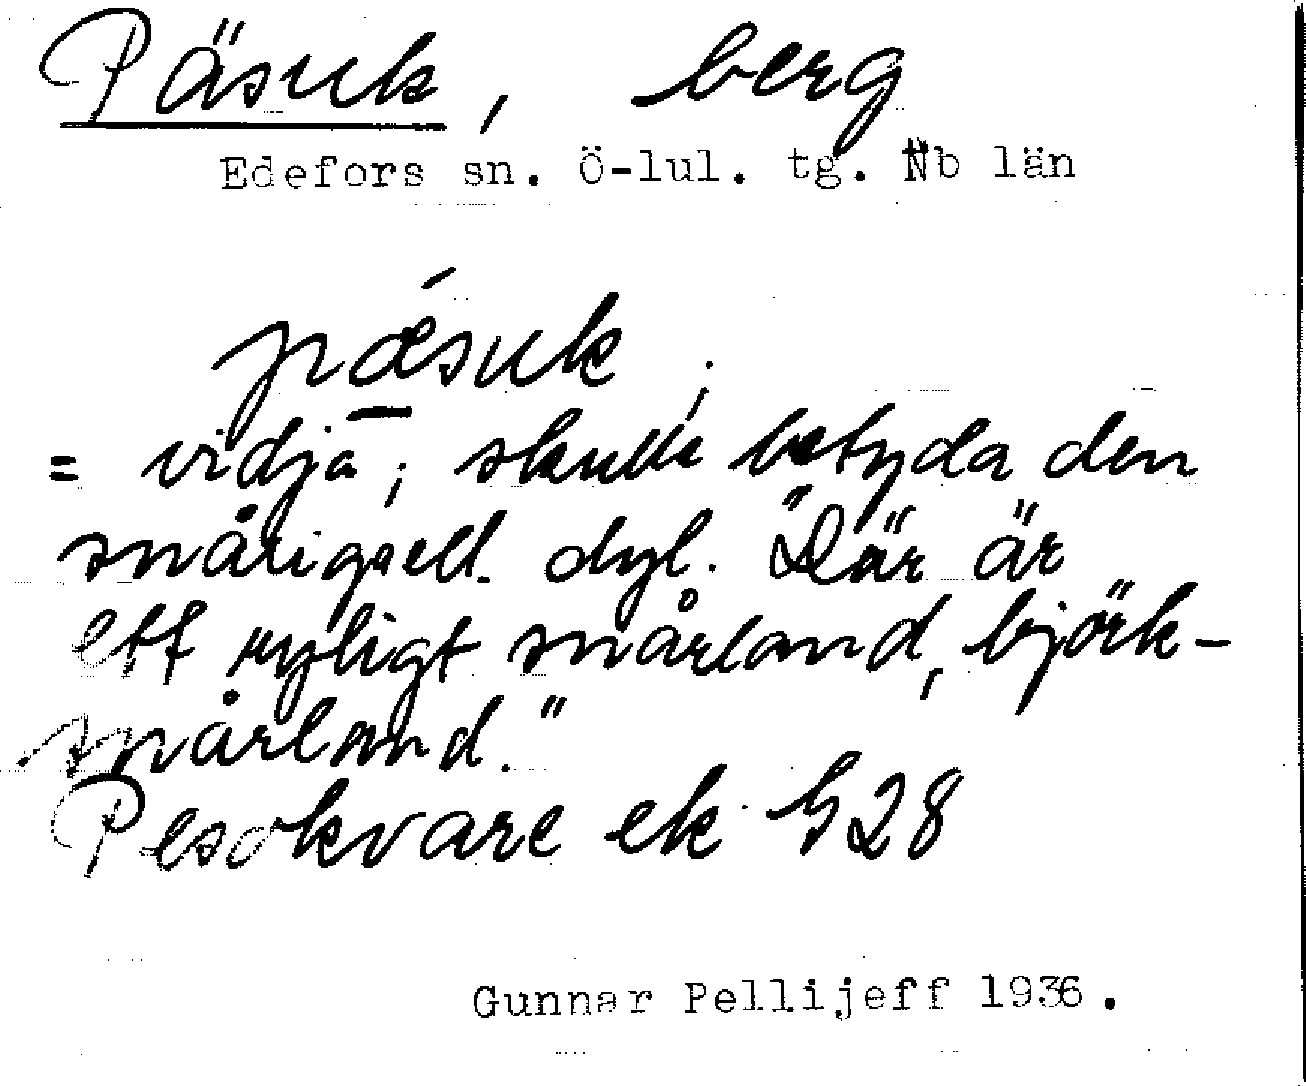 Päsuk, berg
Edefors sn. Ö-lul. tg. Nb län
pǽsuk ;
= vidja; skulle betyda den
snårig ell. dyl. "Där är
ett ryligt snårland, björk-
snårland."
Pesokvare ek 528
Gunnar Pellijeff 1936.